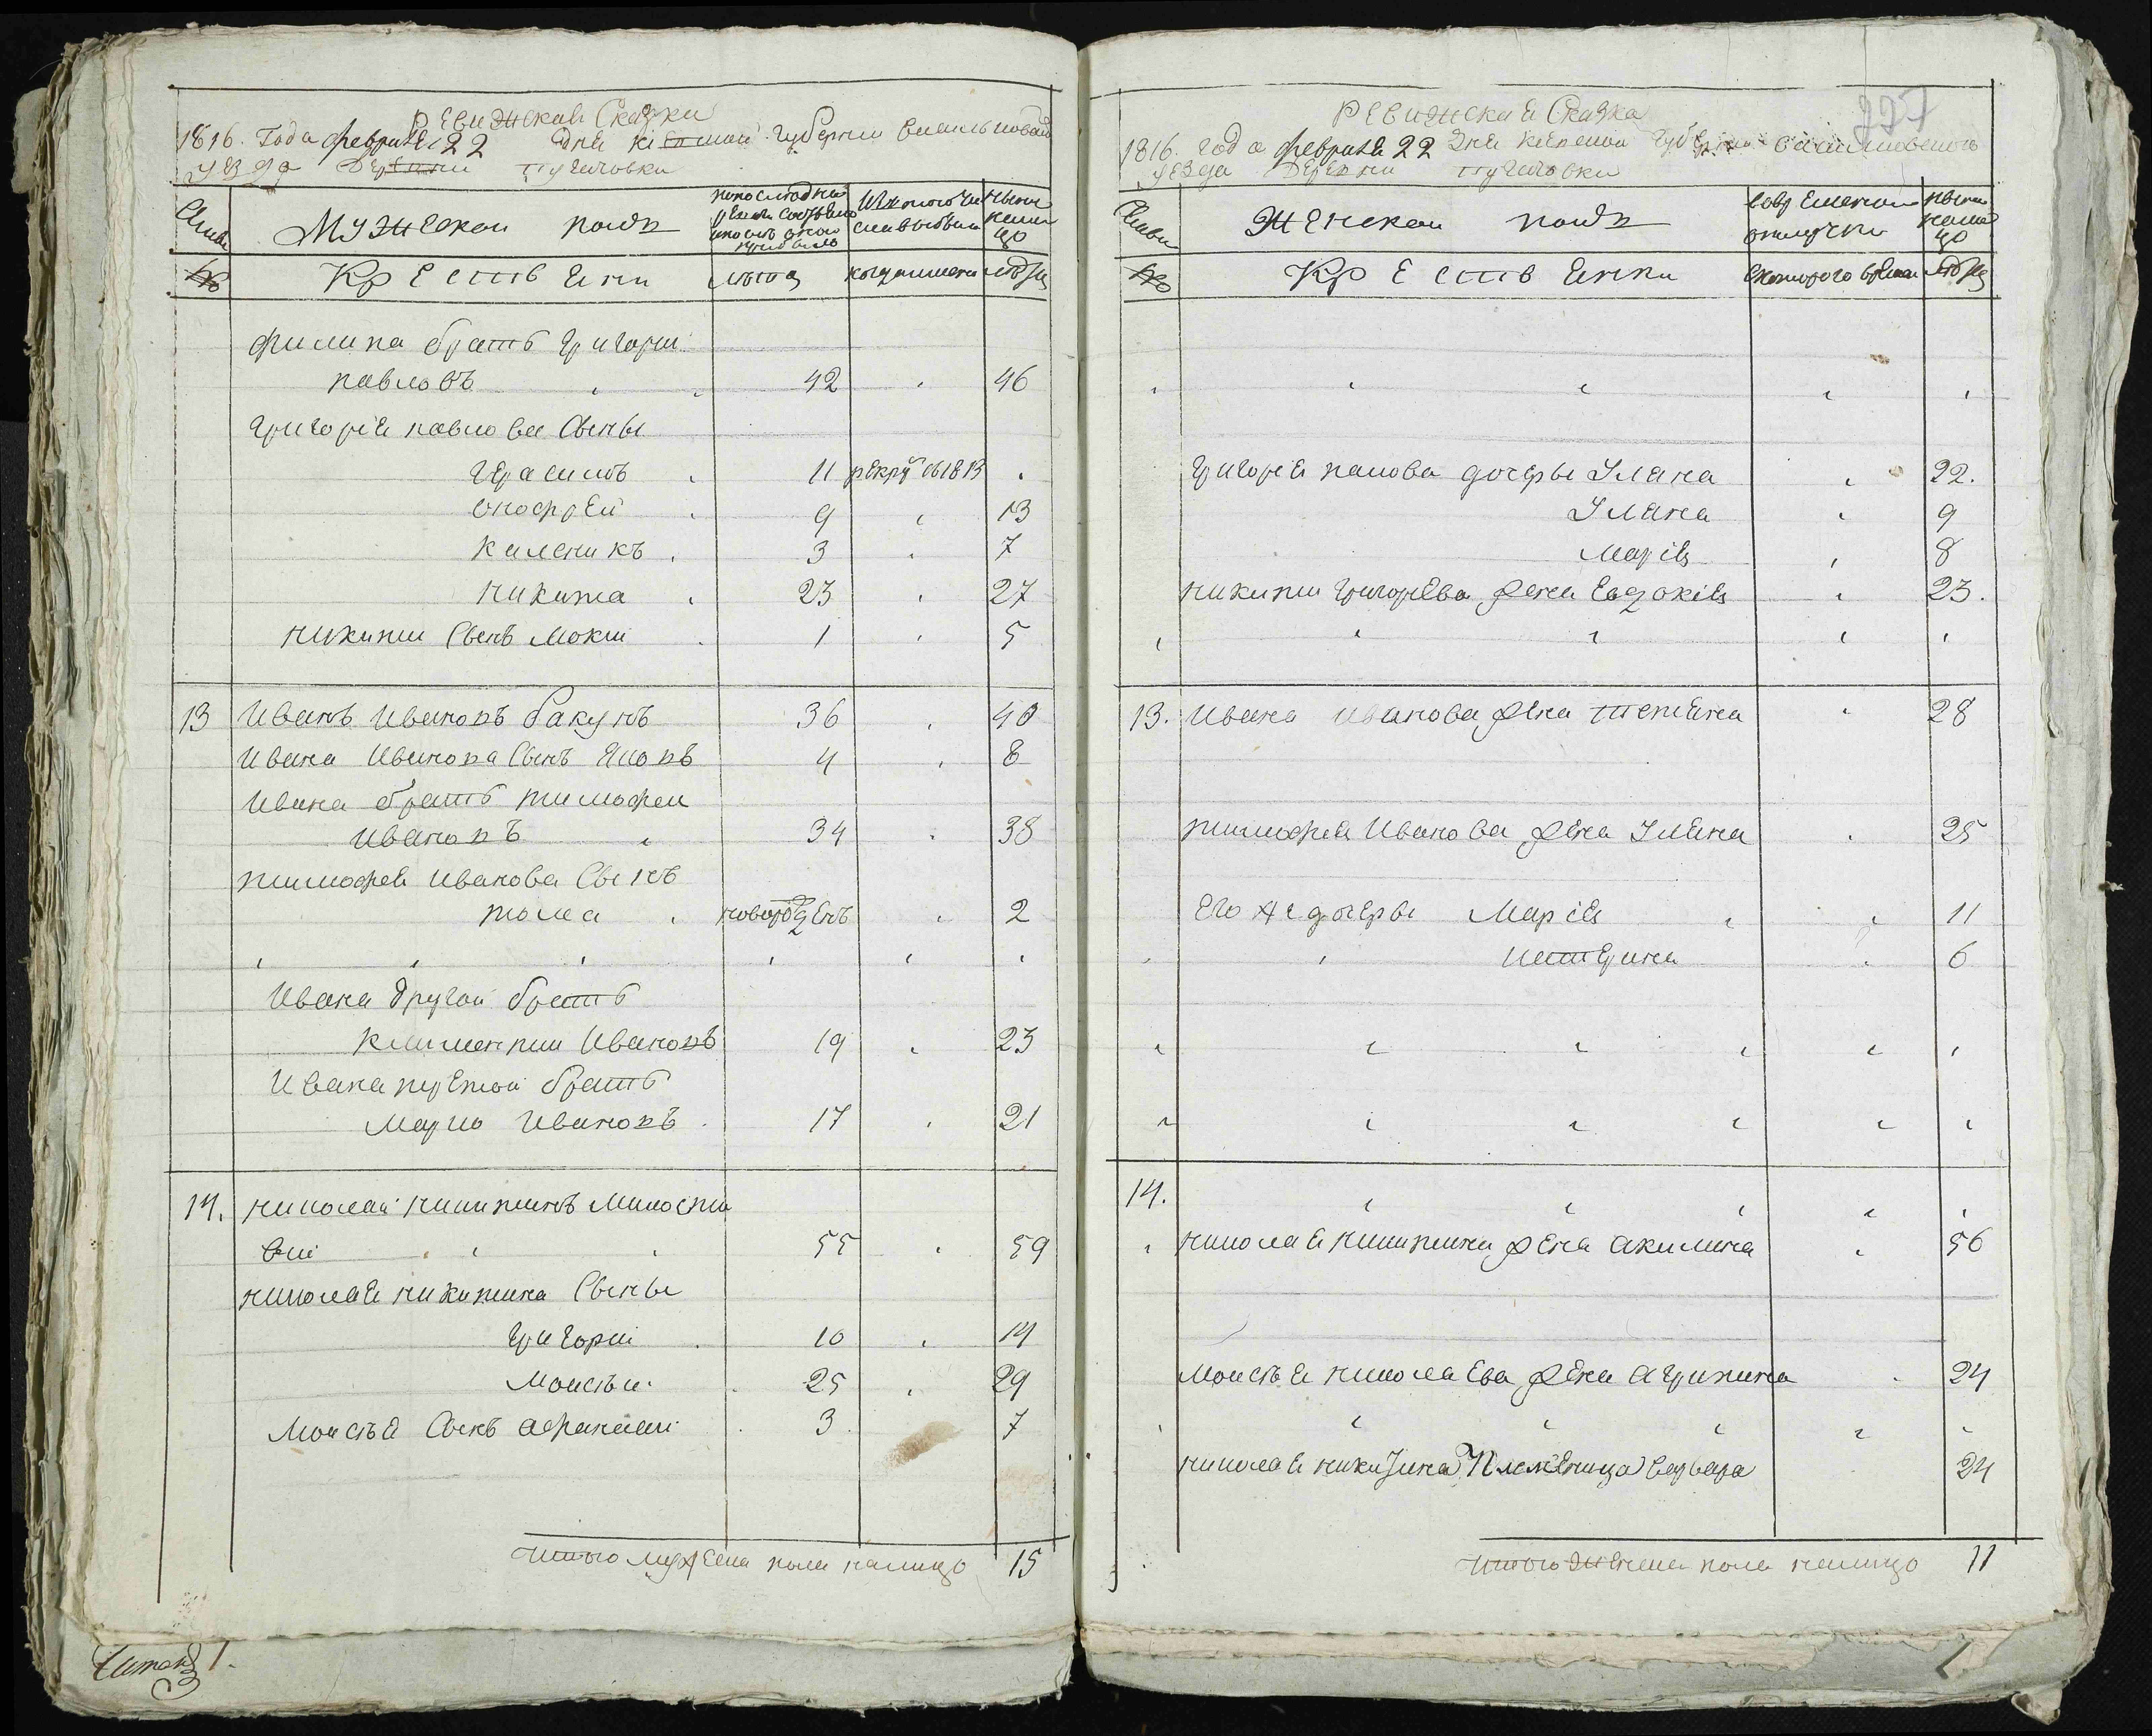 Ревижская Сказка
1816. Года февраля 22 дня Кіевской губерніи Васильковскаго
уезда Деревни Пугачовки
Мужескои полъ
Крестьяни
лѣта
Филипа братъ Григорій
павловъ 42 46
Григорія павлова Сыны
Герасимъ 11 рекрут въ 1813
Онофрей 9 13
Каленикъ 3 7
никита 23 27
никиты Сынъ Мокій 1 5
13 Иванъ Ивановъ бакунъ 36 40
Ивана Иванова Сынъ Яковъ 4 8
Ивана братъ тимофей
Ивановъ 34 38
тимофея Иванова Сынъ
тома новорожденъ 2
Ивана другой братъ
климентий Ивановъ 19 23
Ивана третой братъ
Марко Ивановъ 17 21
14. николай никитинъ Милости
вый 55 59
николая никитина Сыны
Григорій 10 14
Моисѣй 25 29
Моисѣя Сынъ афанасій 3 7
Итого мужеска пола налицо 15
Ревижская Сказка
1816. года февраля 22 дня Кіевской губерніи Васильковского
уезда Деревни Пугачовки
Женской полъ
Крестьянки
с которого времени лѣта
Григорія павлова дочеры Улияна 22.
Улияна 9
Марія 8
никиты Григорьева жена Евдокія 23.
13. Ивана Иванова жена татияна 28
тимофея Иванова жена Улияна 25
Его же дочеры Марія 11
Катерина 6
14.
николая никитина жена акилина 56
Моисѣя николаева жена агрипина 24
николая никитина племеница варвара 24
Итого женска пола налицо 11